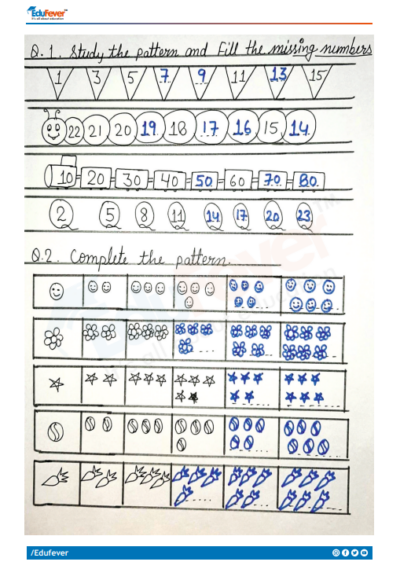 EduFever
It's all about Education
Q.1. Study the pattern and Fill the missing numbers
1 3 5 7 9 11 13 15
22 21 20 19 18 17 16 15 14
10 20 30 40 50 60 70 80
2 5 8 11 14 17 20 23
Q.2. Complete the pattern.
/Edufever